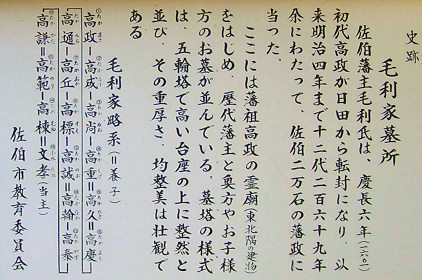 史跡
毛利家墓所
佐伯藩主毛利氏は、慶長六年(一六〇一)
初代高政が日田から転封になり、以
来明治四年まで十二代二百六十九年
余にわたって、佐伯二万石の藩政に
当った。
ここには藩祖高政の霊廟(東北隅の建物)
をはじめ、歴代藩主と奥方やお子様
方のお墓が並んでいる。墓塔の様式
は、五輪塔で高い台座の上に整然と
並び、その重厚さ、均整美は壮観で
ある
毛利家略系(=養子)
高政―高成―高尚―高重=高久=高慶
高通―高丘―高標―高誠―高翰―高泰
高謙―高範―高棟―文孝(当主)
佐伯市教育委員会